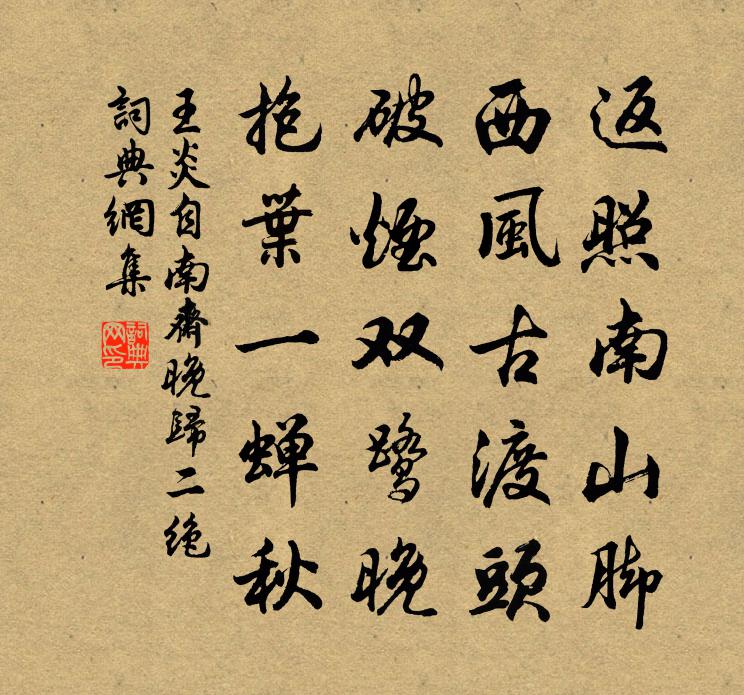 返照南山脚
西風古渡頭
破煙双鷺晚
抱葉一蝉秋
王炎自南齋晚歸二绝
詞典網集
詞典网印